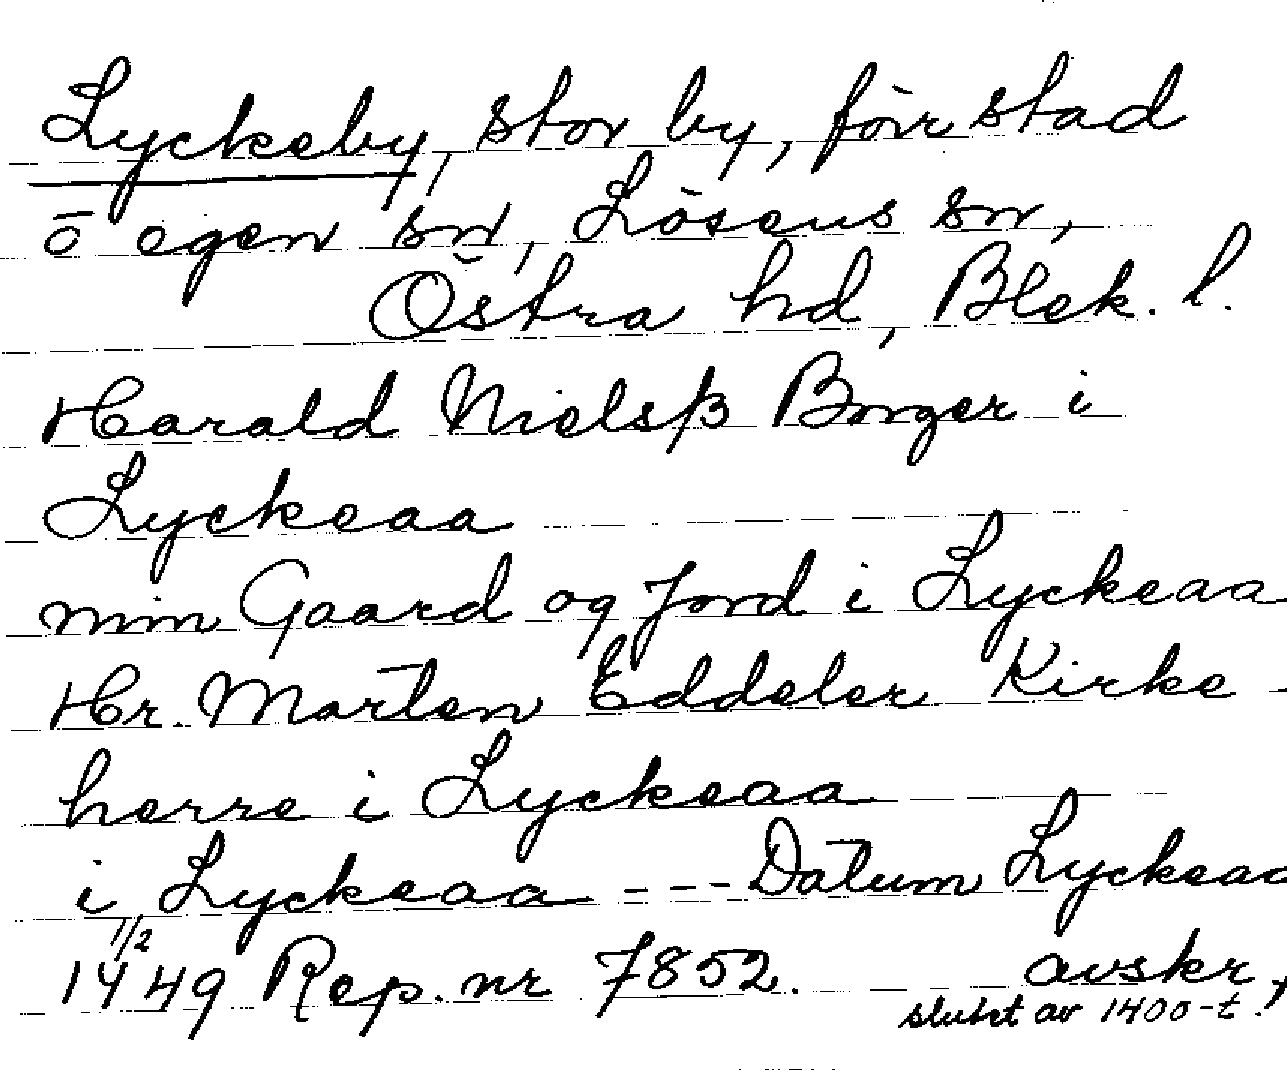 Lyckeby, stor by, förstad
o egen sn, Lösens sn,
Östra hd, Blek. l.
Harald Nielsβ Borger i
Lyckeaa
min Gaard og Jord i Lyckeaa
Hr. Marten Eddeler Kirke-
herre i Lyckeaa
i Lyckeaa --- Datum Lyckeaa
1/2
1449 Rep. nr 7852. avskr,
slutet av 1400-t.